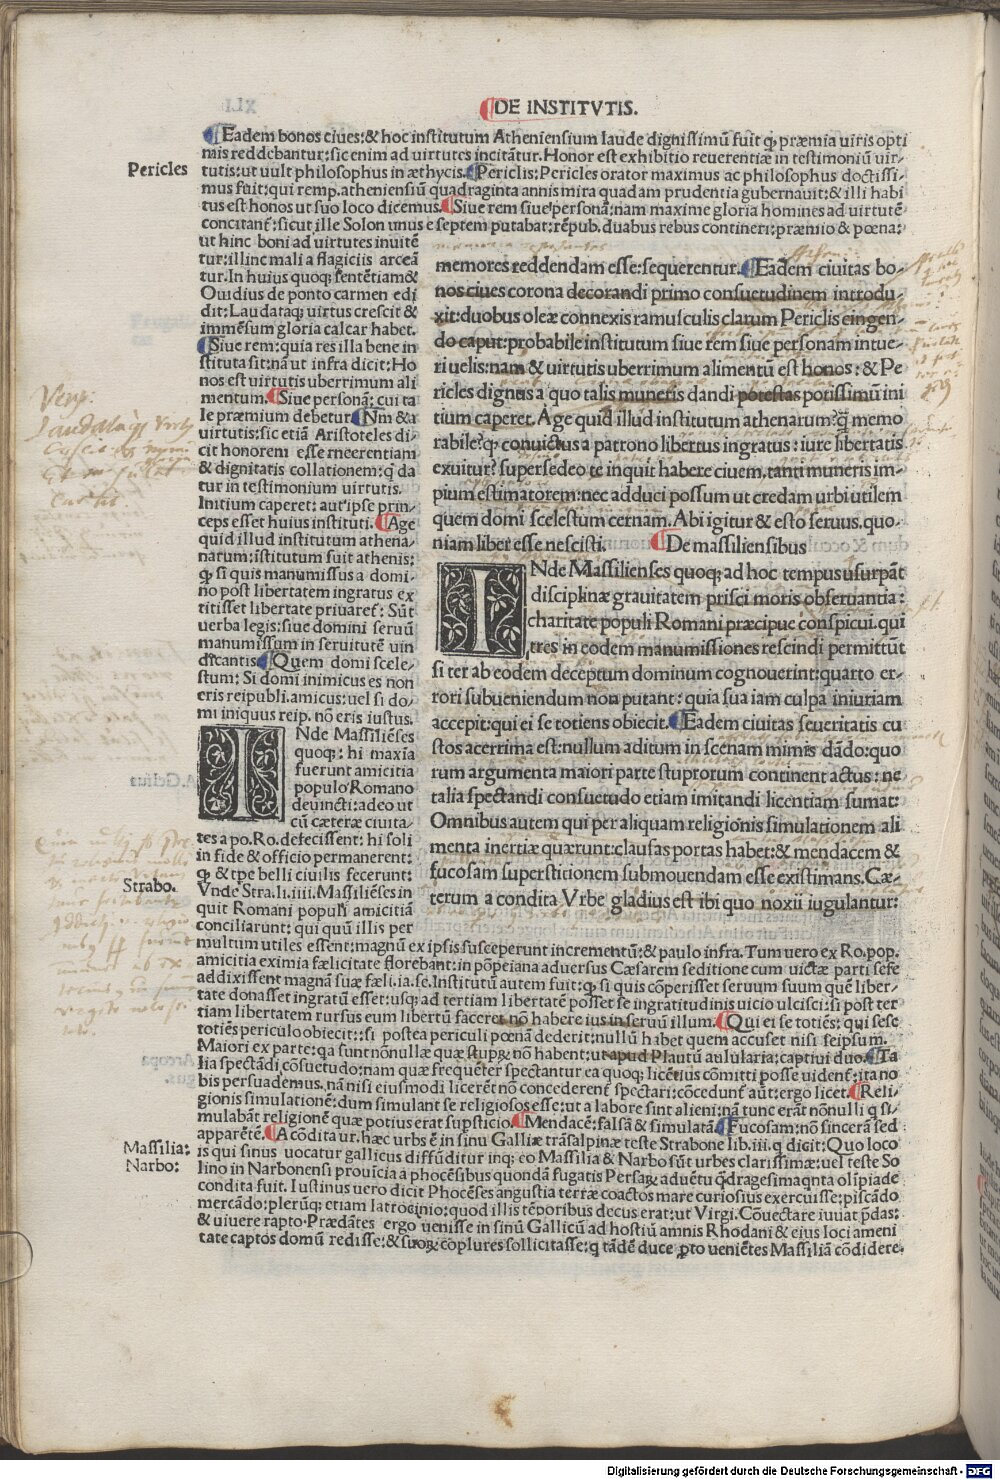 DE INSTITVTIS.
Eadem bonos ciues:& hoc institutum Atheniensium laude dignissimũ fuit ꝙ præmia uiris opti
mis reddebantur:sic enim ad uirtutes incitãtur.Honor est exhibitio reuerentiæ in testimoniũ uir-
Pericles
tutis:ut uult philosophus in æthycis. Periclis:Pericles orator maximus ac philosophus doctissi-
mus fuit:qui remp.atheniensiũ quadraginta annis mira quadam prudentia gubernauit:& illi habi
tus est honos ut suo loco dicemus. Siue rem siue personã:nam maxime gloria homines ad uirtutẽ
concitant̃:sicut ille Solon unus e septem putabat:rẽpub.duabus rebus contineri:præmio & pœna:
ut hinc boni ad uirtutes inuitẽ
tur:illinc mali a flagiciis arceã
tur.In huius quoqꝫ sentẽtiam&
Ouidius de ponto carmen edi
dit:Laudataqꝫ uirtus crescit &
immẽsum gloria calcar habet.
Siue rem:quia res illa bene in
stituta sit:nã ut infra dicit:Ho
nos est uirtutis uberrimum ali
mentum. Siue personã:cui ta
le præmium debetur. Nm & a
uirtutis:sic etiã Aristoteles di-
cit honorem esse rreerentiam
& dignitatis collationem:ꝙ da
tur in testimonium uirtutis.
Initium caperet:aut ipse prin-
ceps esset huius instituti. Age
quid illud institutum athena-
narum:istitutum fuit athenis:
ꝙ si quis manumissus a domi-
no post libertatem ingratus ex
titisset libertate priuaret̃:Sũt
uerba legis:siue domini seruũ
manumissum in seruitutẽ uin
dicantis. Quem domi scele-
stum:Si domi inimicus es non
eris reipubli.amicus:uel si do-
mi iniquus reip. nõ eris iustus.
memores reddendam esse:sequerentur. Eadem ciuitas bo-
nos ciues corona decorandi primo consuetudinem introdu-
xit:duobus oleæ connexis ramusculis clarum Periclis cingen-
do caput:probabile institutum siue rem siue personam intue-
ri uelis:nam & uirtutis uberrimum alimentũ est honos:& Pe
ricles dignus a quo talis muneris dandi potestas potissimũ ini
tium caperet. Age quid illud institutum athenarum?ꝗ̃ memo
rabile?ꝙ conuictus a patrono libertus ingratus:iure libertatis
exuitur?supersedeo te inquit habere ciuem.tanti muneris im-
pium estimatorem:nec adduci possum ut credam urbi utilem
quem domi scelestum cernam.Abi igitur & esto seruus.quo-
niam liber esse nescisti. De massiliensibus
INde Massilienses quoqꝫ ad hoc tempus usurpãt
disciplinæ grauitatem prisci moris obseruantia:
charitate populi Romani præcipue conspicui.qui
tres in eodem manumissiones rescindi permittũt
si ter ab eodem deceptum dominum cognouerint:quarto er-
rori subueniendum non putant:quia sua iam culpa iniuriam
accepit:qui ei se totiens obiecit. Eadem ciuitas seueritatis cu
stos acerrima est:nullum aditum in scenam mimis dãdo:quo
rum argumenta maiori parte stuprorum continent actus:ne
talia spectandi consuetudo etiam imitandi licentiam sumat:
Omnibus autem qui per aliquam religionis simulationem ali
menta inertiæ quærunt:clausas portas habet:& mendacem &
fucosam superstitionem submouendam esse existimans.Cæ-
terum a condita Vrbe gladius est ibi quo noxii iugulantur:
INde Massiliẽses
quoqꝫ:hi maxia
fuerunt amicitia
populo Romano
deuincti:adeo ut
cũ cæteræ ciuita-
tes a po.Ro.defecissent:hi soli
in fide & officio permanerent:
ꝙ & tpe belli ciuilis fecerunt:
Strabo.
Vnde Stra.li.iiii.Massiliẽses in
quit Romani populi amicitiã
conciliarunt:qui quũ illis per
multum utiles essent:magnũ ex ipsis susceperunt incrementũ:& paulo infra.Tum uero ex Ro.pop.
amicitia eximia fælicitate florebant:in põpeiana aduersus Cæsarem seditione cum uictæ parti sese
addixissent magnã suæ fæli.ia.se.Institutũ autem fuit:ꝙ si quis cõperisset seruum suum quẽ liber-
tate donasset ingratũ esset:usqꝫ ad tertiam libertatẽ posset se ingratitudinis uicio ulcisci:si post ter
tiam libertatem rursus eum libertũ faceret nõ habere ius in seruũ illum. Qui ei se totiẽs:qui sese
totiẽs periculo obiecit::si postea periculi pœnã dederit:nullũ habet quem accuset nisi seipsum.
Maiori ex parte:ꝗa sunt nõnullæ quæ stupꝝ nõ habent:ut apud Plautũ aulularia:captiui duo. Ta
lia spectãdi cõsuetudo:nam quæ frequẽter spectantur ea quoqꝫ licẽtius cõmitti posse uident̃:ita no
bis persuademus.nã nisi eiusmodi licerẽt nõ concederent̃ spectari:cõcedunt̃ aũt:ergo licet. Reli-
gionis simulationẽ:dum simulant se religiosos esse:ut a labore sint alieni:nã tunc erãt nõnulli ꝗ si-
mulabãt religionẽ quæ potius erat supsticio. Mendacẽ:falsã & simulatã. Fucosam:nõ sincerã sed
apparẽtẽ. A cõdita ur.hæc urbs ẽ in sinu Galliæ trãsalpinæ teste Strabone lib.iii.q dicit:Quo loco
Massilia:
is qui sinus uocatur gallicus diffũditur inqꝫ:eo Massilia & Narbo sũt urbes clarissimæ:uel teste So
Narbo:
lino in Narbonensi prouĩcia a phocẽsibus quondã fugatis Persaꝝ aduẽtu ꝗ̃dragesimaꝗnta olĩpiade
condita fuit.Iustinus uero dicit Phocẽses angustia terræ coactos mare curiosius exercuisse:piscãdo
mercãdo:plerũqꝫ etiam latrocinio:quod illis tẽporibus decus erat:ut Virgi.Cõuectare iuuat p̃das:
& uiuere rapto.Prædãtes ergo uenisse in sinũ Gallicũ ad hostiũ amnis Rhodani & eius loci ameni
tate captos domũ redisse:& suoꝝ cõplures sollicitasse:ꝗ tãdẽ duce ꝓto ueniẽtes Massiliã cõdidere.
Digitalisierung gefördert durch die Deutsche Forschungsgemeinschaft - DFG